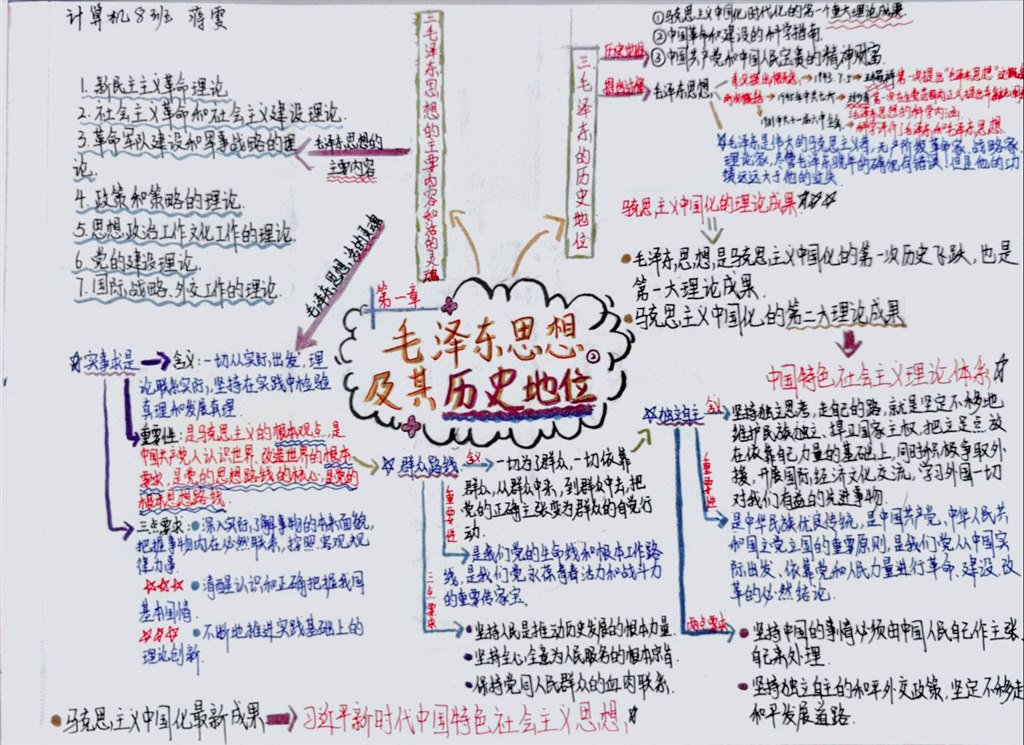 计算机8班 蒋雯
1. 新民主主义革命理论
2. 社会主义革命和社会主义建设理论.
3. 革命军队建设和军事战略的理
论.
4. 政策和策略的理论.
5. 思想政治工作文化工作的理论.
6. 党的建设理论.
7. 国际战略、外交工作的理论.
毛泽东思想的
主要内容
三毛泽东思想的主要内容和活的灵魂
毛泽东思想活的灵魂
三毛泽东的历史地位
历史地位
①马克思主义中国化时代化的第一个重大理论成果
②中国革命和建设的科学指南.
③中国共产党和中国人民宝贵的精神财富.
毛泽东思想
毛泽东是伟大的马克思主义者, 无产阶级革命家、战略家、
理论家, 尽管毛泽东晚年的确犯有错误, 但是他的功
绩远远大于他的过失.
马克思主义中国化的理论成果.
毛泽东思想, 是马克思主义中国化的第一次历史飞跃, 也是
第一大理论成果.
马克思主义中国化的第二大理论成果
中国特色社会主义理论体系
第一章
毛泽东思想
及其历史地位
实事求是
含义: 一切从实际出发, 理
论联系实际, 坚持在实践中检验
真理和发展真理.
重要性: 是马克思主义的根本观点, 是
中国共产党人认识世界、改造世界的根本
要求, 是党的思想路线的核心, 是党的
根本思想路线
三点要求: 深入实际了解事物的本来面貌,
把握事物内在必然联系, 按照客观规
律办事
清醒认识和正确把握我国
基本国情.
不断地推进实践基础上的
理论创新.
群众路线
含义
一切为了群众, 一切依靠
群众, 从群众中来, 到群众中去, 把
党的正确主张变为群众的自觉行
动.
重要性
是我们党的生命线和根本工作路
线, 是我们党永葆青春活力和战斗力
的重要传家宝.
三点要求
坚持人民是推动历史发展的根本力量.
坚持全心全意为人民服务的根本宗旨.
保持党同人民群众的血肉联系.
独立自主
含义
坚持独立思考, 走自己的路, 就是坚定不移地
维护民族独立、捍卫国家主权, 把立足点放
在依靠自己力量的基础上, 同时积极争取外
援, 开展国际经济文化交流, 学习外国一切
对我们有益的先进事物.
重要性
是中华民族优良传统, 是中国共产党、中华人民共
和国立党立国的重要原则, 是我们党从中国实
际出发、依靠党和人民力量进行革命、建设、改
革的必然结论.
两点要求
坚持中国的事情必须由中国人民自己作主张,
自己来处理.
坚持独立自主的和平外交政策, 坚定不移走
和平发展道路.
马克思主义中国化最新成果
习近平新时代中国特色社会主义思想,